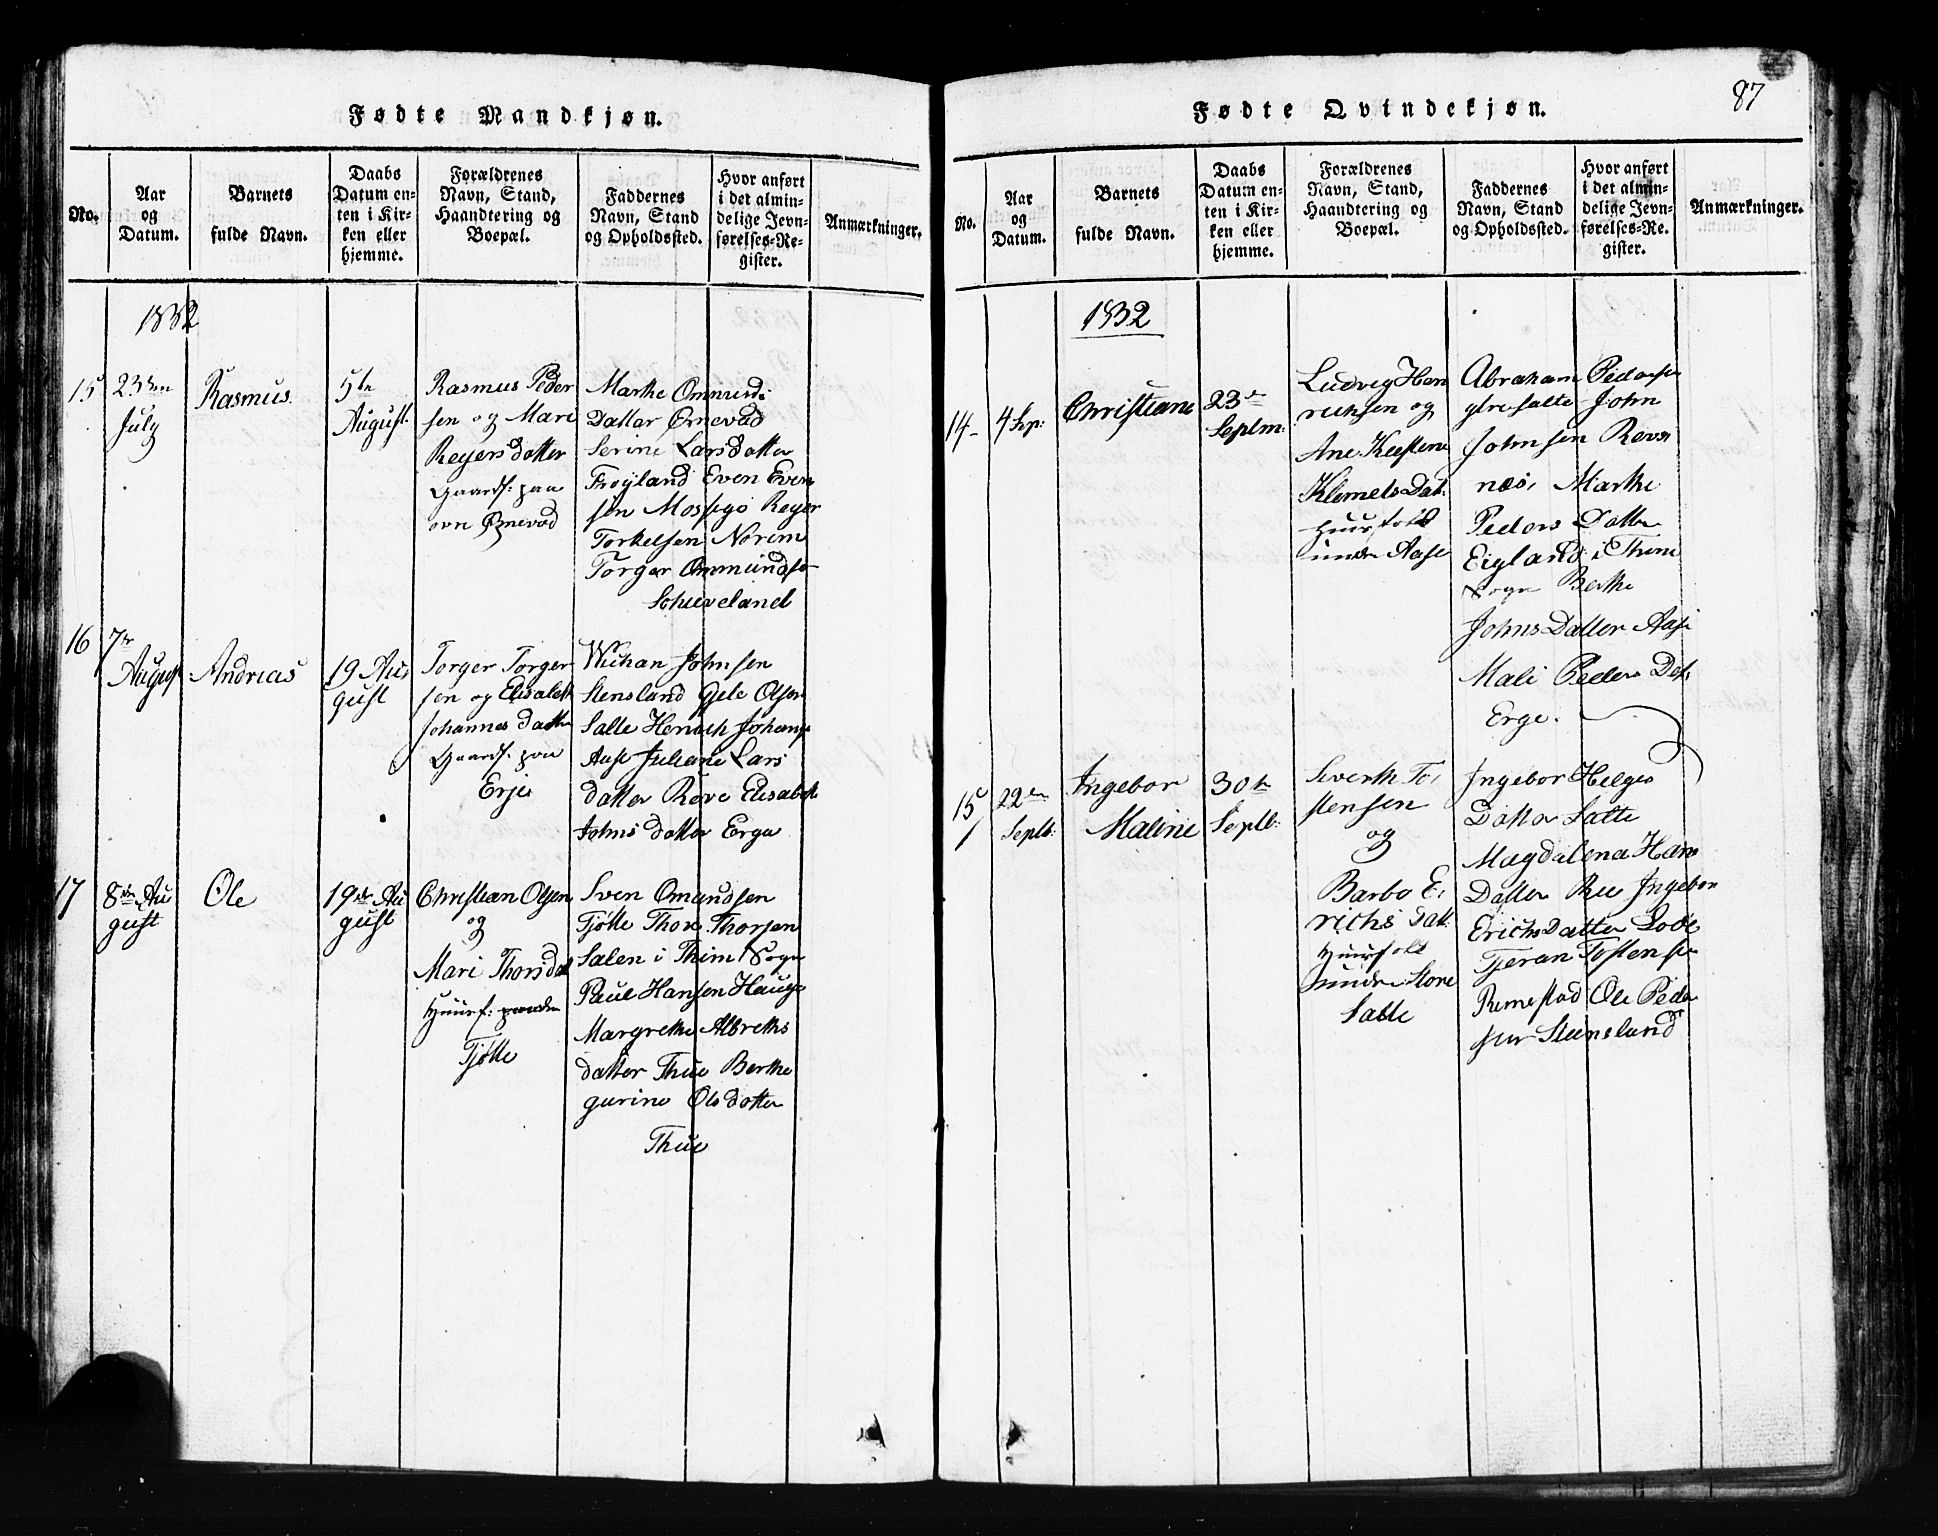 Fødte Mandkjøn.
No.
Aar
og
Datum.
Barnets
fulde Navn.
Daabs
Datum en-
ten i Kir-
ken eller
hjemme.
Forældrenes
Navn, Stand,
Haandtering og
Boepæl.
Faddernes
Navn, Stand
og Opholdssted.
Hvor anført
i det almin-
delige Jevn-
førelses-Re-
gister.
Anmærkninger.
1832
15
23den
July
Rasmus
5te
August.
Rasmus Peder
sen og Mari
Reyersdatter
Gaardf: paa
øvre Ørnevad
Marthe Ommunds
Datter Ørnevad
Serine Larsdatter
Frøyland Even Even
sen Mossige Reyer
Torkelsen Norem
Torger Ommundse
Schieveland
16
7de
August
Andreas
19 Au,
gust
Torger Torger
sen og Elisabeth
Johannes datter
Gaardf: paa
Erje
Johnsen
Stensland Gjele Olsen
Salte Henrich Johans
Aase Juliane Lars
datter Reve Elisabeth
Johns datter Erga
17
8de Au
gust
Ole
19de Au
gust
Christian Olsen
og
Mari Thorsdat
Huusf:
Tjøtte
Sven Omundsen
Tjøtte Thore Thorsen
Salen i Thim Sogn
Paul Hansen Hauge
Margrethe Albreths
datter Thue Berthe
gurine Olsdatter
Thue
Fødte Qvindekjøn.
87
No.
Aar
og
Datum.
Barnets
fulde Navn.
Daabs
Datum en-
ten i Kir-
ken eller
hjemme.
Forældrenes
Navn, Stand,
Haandtering og
Boepæl.
Faddernes
Navn, Stand
og Opholdssted.
Hvor anført
i det almin-
delige Jevn-
førelses-Re-
gister.
Anmærkninger.
1832
14
4 Sep:
Christiane
23de
Septm:
Ludvig Hen
richsen og
Ane Kirstene
Klemets Dat:
Huusfolk
under Aase
Abraham Pederse
ytre salte John
Johnsen Revs
næs, Marthe
Peders Datter
Eigland i Thime
Sogn Berthe
Johns Datter Aase
Mali Peders Dat:
Erge.
15
22de
Septb:
Ingebor
Maline
30te
Septb:
Siverth To,
stensen
og
Barbo E,
richs Datt
Huusfolk
under Store
Salte
Ingebor Helges
Datter Salte
Magdalena Hans
Datter Ree Ingebor
Erichs Datter Lode
Tjeran Tostense
Rimestad Ole Peder
sen Stensland